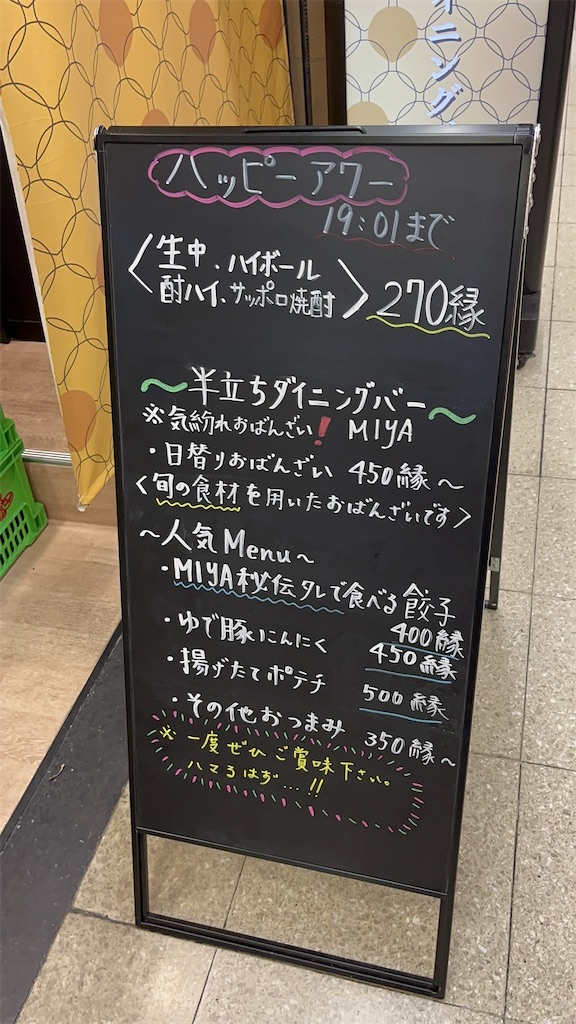 オニング
ハッピーアワー
19:01まで
〈生中、ハイボール
酎ハイ、サッポロ焼酎〉270縁
〜半立ちダイニングバー〜
※気紛れおばんざい! MIYA
・日替りおばんざい 450縁〜
〈旬の食材を用いたおばんざいです〉
〜人気Menu〜
・MIYA秘伝タレで食べる餃子
400縁
・ゆで豚にんにく 450縁
・揚げたてポテチ 500縁
・その他おつまみ 350縁〜
※一度ぜひご賞味下さい。
ハマるはず…!!